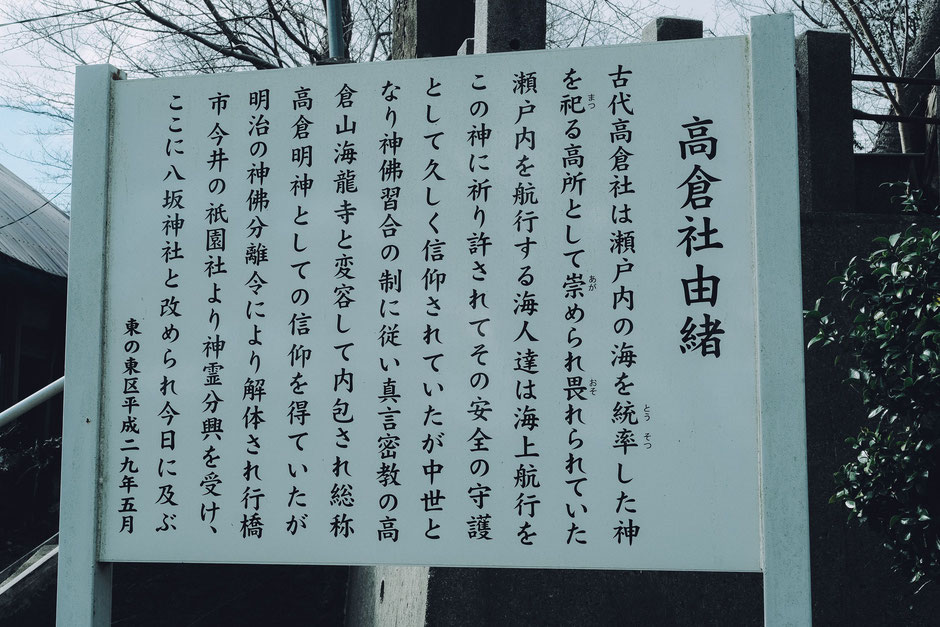 高倉社由緒
古代高倉社は瀬戸内の海を統率した神
を祀る高所として崇められ畏れられていた
瀬戸内を航行する海人達は海上航行を
この神に祈り許されてその安全の守護
として久しく信仰されていたが中世と
なり神佛習合の制に従い真言密教の高
倉山海龍寺と変容して内包され総称
高倉明神としての信仰を得ていたが
明治の神佛分離令により解体され行橋
市今井の祇園社より神霊分興を受け、
ここに八坂神社と改められ今日に及ぶ
東の東区平成二九年五月